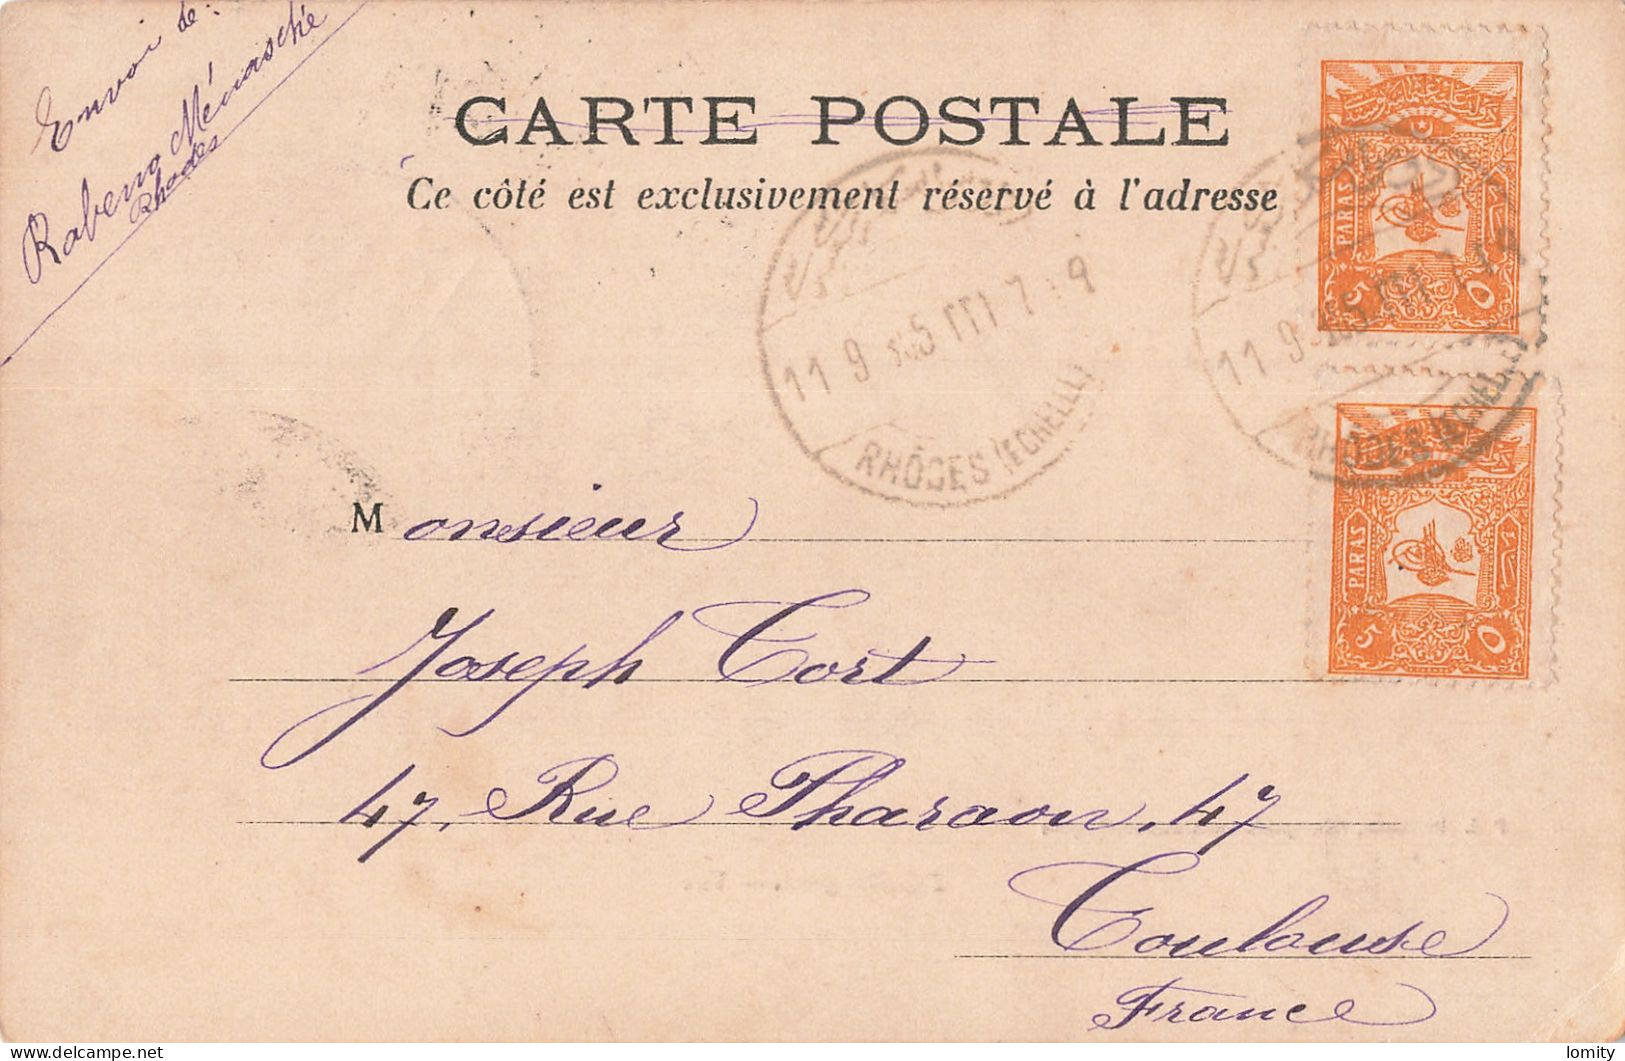 Envoi de:
Rabeno Ménasché
Rhodes
CARTE POSTALE
Ce côté est exclusivement réservé à l'adresse
PARAS
5
PARAS
5
11 9
RHÔDES (ECHELLE)
11 9
RHÔDES (ECHELLE)
Monsieur
Joseph Cort
47, Rue Pharaon, 47
Toulouse
France
delcampe.net
lomity